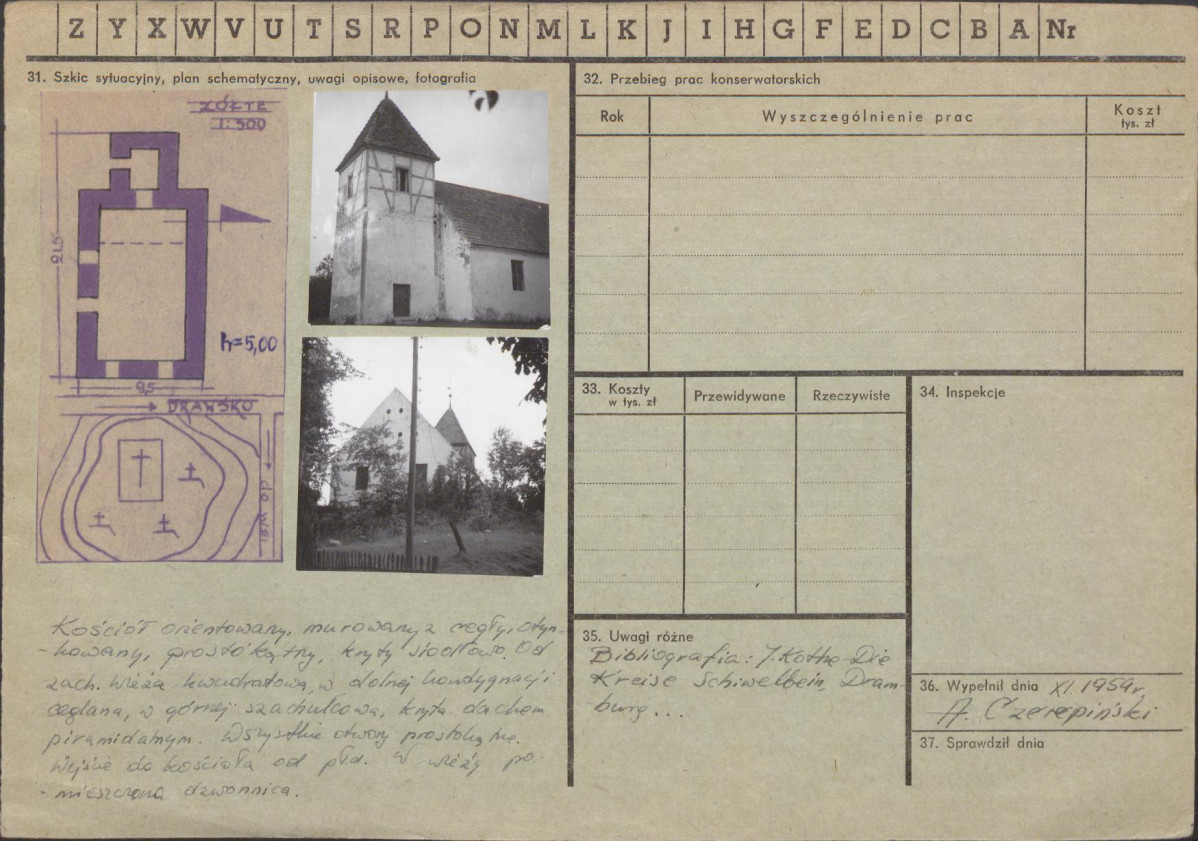 Z Y X W V U T S R P O N M L K J I H G F E D C B A Nr
31. Szkic sytuacyjny, plan schematyczny, uwagi opisowe, fotografia
ŻÓŁTE
1:500
21,5
h=5,00
9,5
DRAWSKO
do wsi
Kościół orientowany, murowany z cegły, otyn-
-kowany, prostokątny, kryty siodłowo. Od
zach. wieża kwadratowa, w dolnej kondygnacji
ceglana, w górnej szachulcowa, kryta dachem
piramidalnym. Wszystkie otwory prostokątne.
Wejście do kościoła od płd. W wieży po-
-mieszczona dzwonnica.
32. Przebieg prac konserwatorskich
Rok
Wyszczególnienie prac
Koszt
tys. zł
33. Koszty
w tys. zł
Przewidywane
Rzeczywiste
34. Inspekcje
35. Uwagi różne
Bibliografia: J. Kothe-Die
Kreise Schiwelbein, Dram-
-burg...
36. Wypełnił dnia XI. 1959r.
A. Czerepiński
37. Sprawdził dnia